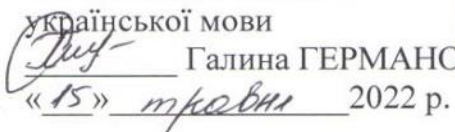 української мови
Галина ГЕРМАНО
«15» травня 2022 р.